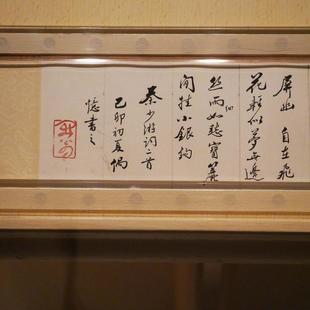 屏幽 自在飛
花輕似夢无邊
丝雨細如愁寶簾
閒挂小銀鉤
秦少游詞二首
己卯初夏偶
憶書之